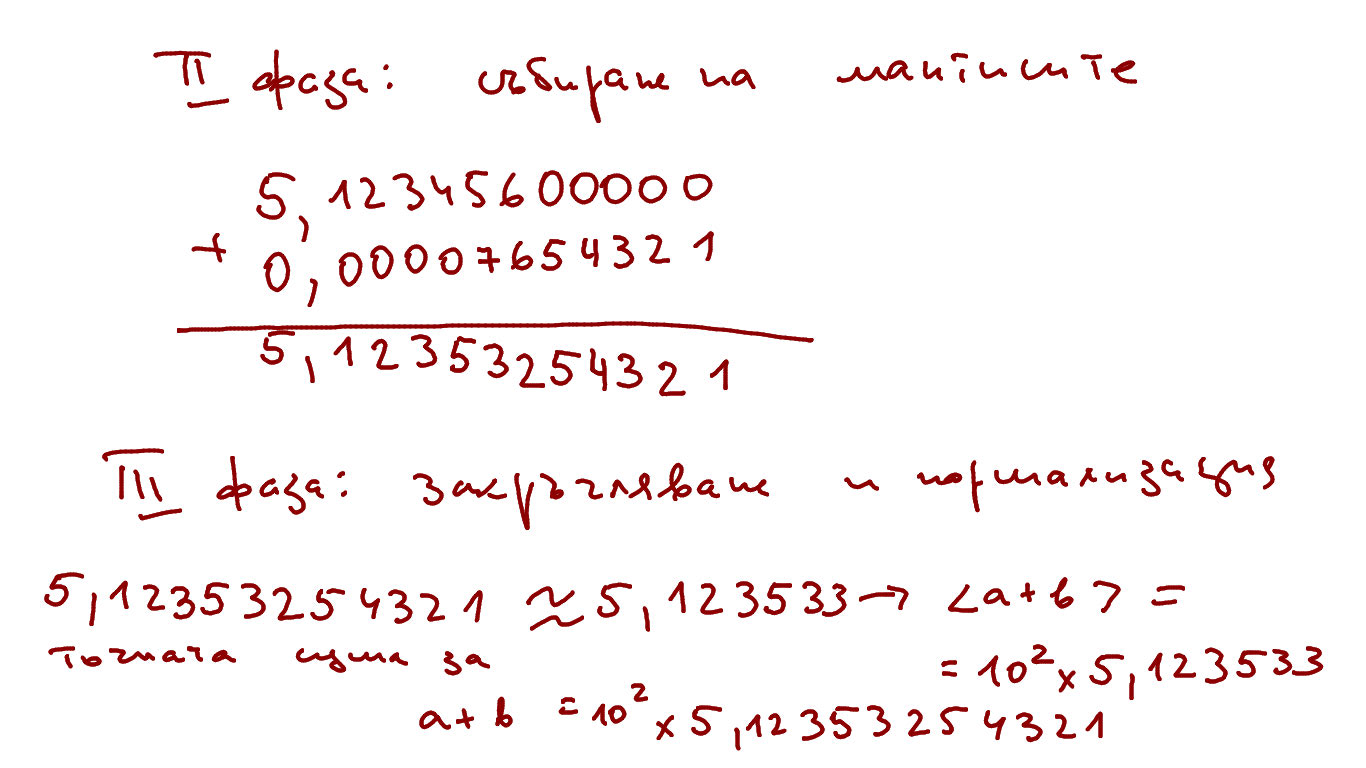 II фаза: събиране на мантисите
5,12345600000
+
0,00007654321
5,12353254321
III фаза: закръгляване и нормализация
5,12353254321 ≈ 5,123533 → <a+b> =
точната сума за = 10² × 5,123533
a+b = 10² × 5,12353254321